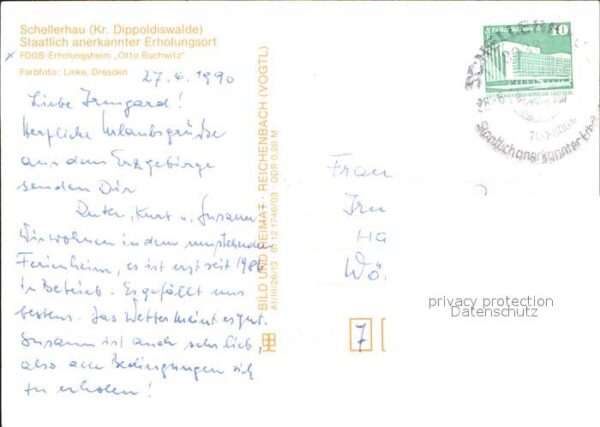 Schellerhau (Kr. Dippoldiswalde)
Staatlich anerkannter Erholungsort
x FDGB-Erholungsheim „Otto Buchwitz"
Farbfoto: Linke, Dresden
27.6.1990
Liebe Irmgard!
Herzliche Urlaubsgrüße
aus dem Erzgebirge
senden Dir
Ruth, Kurt u. Susann
Wir wohnen in dem umstehenden
Ferienheim, es ist erst seit 1986
in Betrieb. Es gefällt uns
bestens. Das Wetter meint es gut.
Susann ist auch sehr lieb,
also alle Bedingungen sich
zu erholen!
BILD UND HEIMAT · REICHENBACH (VOGTL)
A1/III/26/13 · 01 12 1746/03 · DDR 0,20 M
10
Staatlich anerkannter
Frau
Irm
Ha
Wö
7
privacy protection
Datenschutz